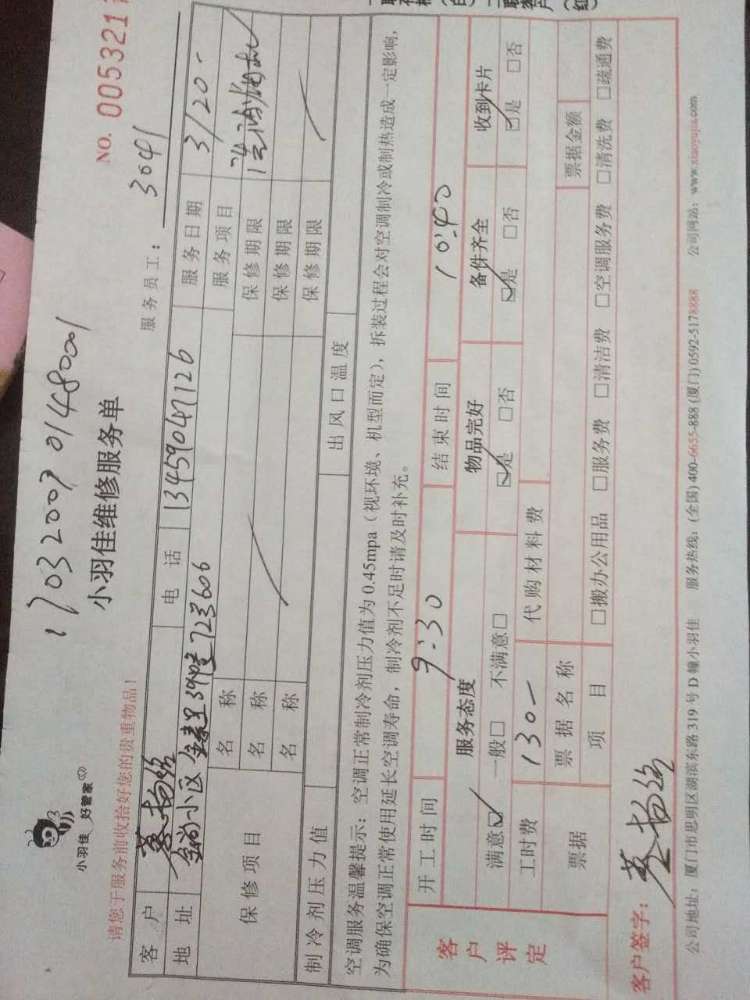 小羽佳 好管家
17032007 0148001
NO. 0053217
小羽佳维修服务单
请您于服务前收拾好您的贵重物品！
服务员工： 3041
客户 电话 13459047126 服务日期 3/20-
地址 金尚小区 39 723606 服务项目
保修项目 名称 保修期限
名称 保修期限
名称 保修期限
制冷剂压力值 出风口温度
空调服务温馨提示：空调正常制冷剂压力值为 0.45mpa（视环境、机型而定），拆装过程会对空调制冷或制热造成一定影响，
为确保空调正常使用延长空调寿命，制冷剂不足时请及时补充。
客户评定
开工时间 9:30 结束时间 10:40
服务态度 物品完好 备件齐全 收到卡片
满意☑ 一般□ 不满意□ ☑是 □否 ☑是 □否 ☑是 □否
工时费 130- 代购材料费
票据 票据名称 票据金额
项目 □搬办公用品 □服务费 □清洁费 □空调服务费 □清洗费 □疏通费
客户签字：
公司地址：厦门市思明区湖滨东路 319 号 D 幢小羽佳 服务热线：(全国) 400-6655-888 (厦门) 0592-5178888 公司网站：www.xiaoyujia.com